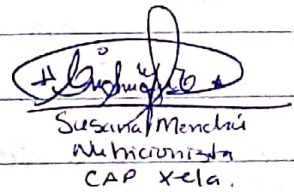 Susana Menchú
Nutricionista
CAP Xela.